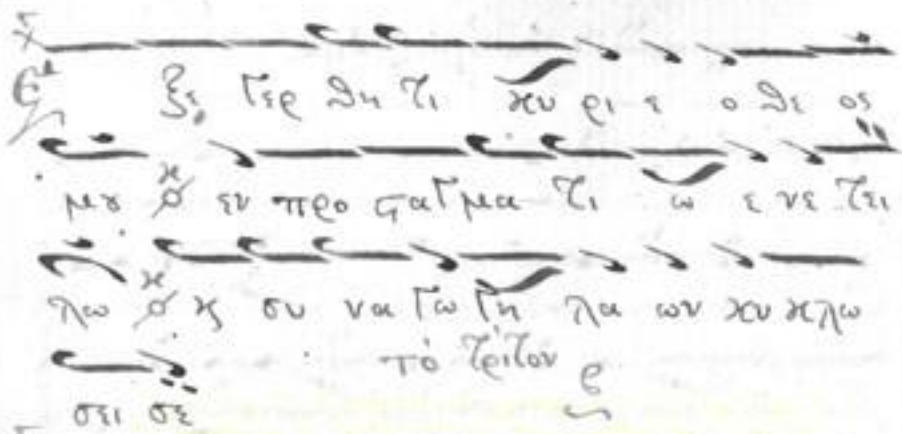 Ἐ ξε γερ θη τι κυ ρι ε ο θε ος
μου εν προ σταγ μα τι ω ε νε τει
λω ϗ συ να γω γη λα ων κυ κλω
τὸ τρίτον
σει σε